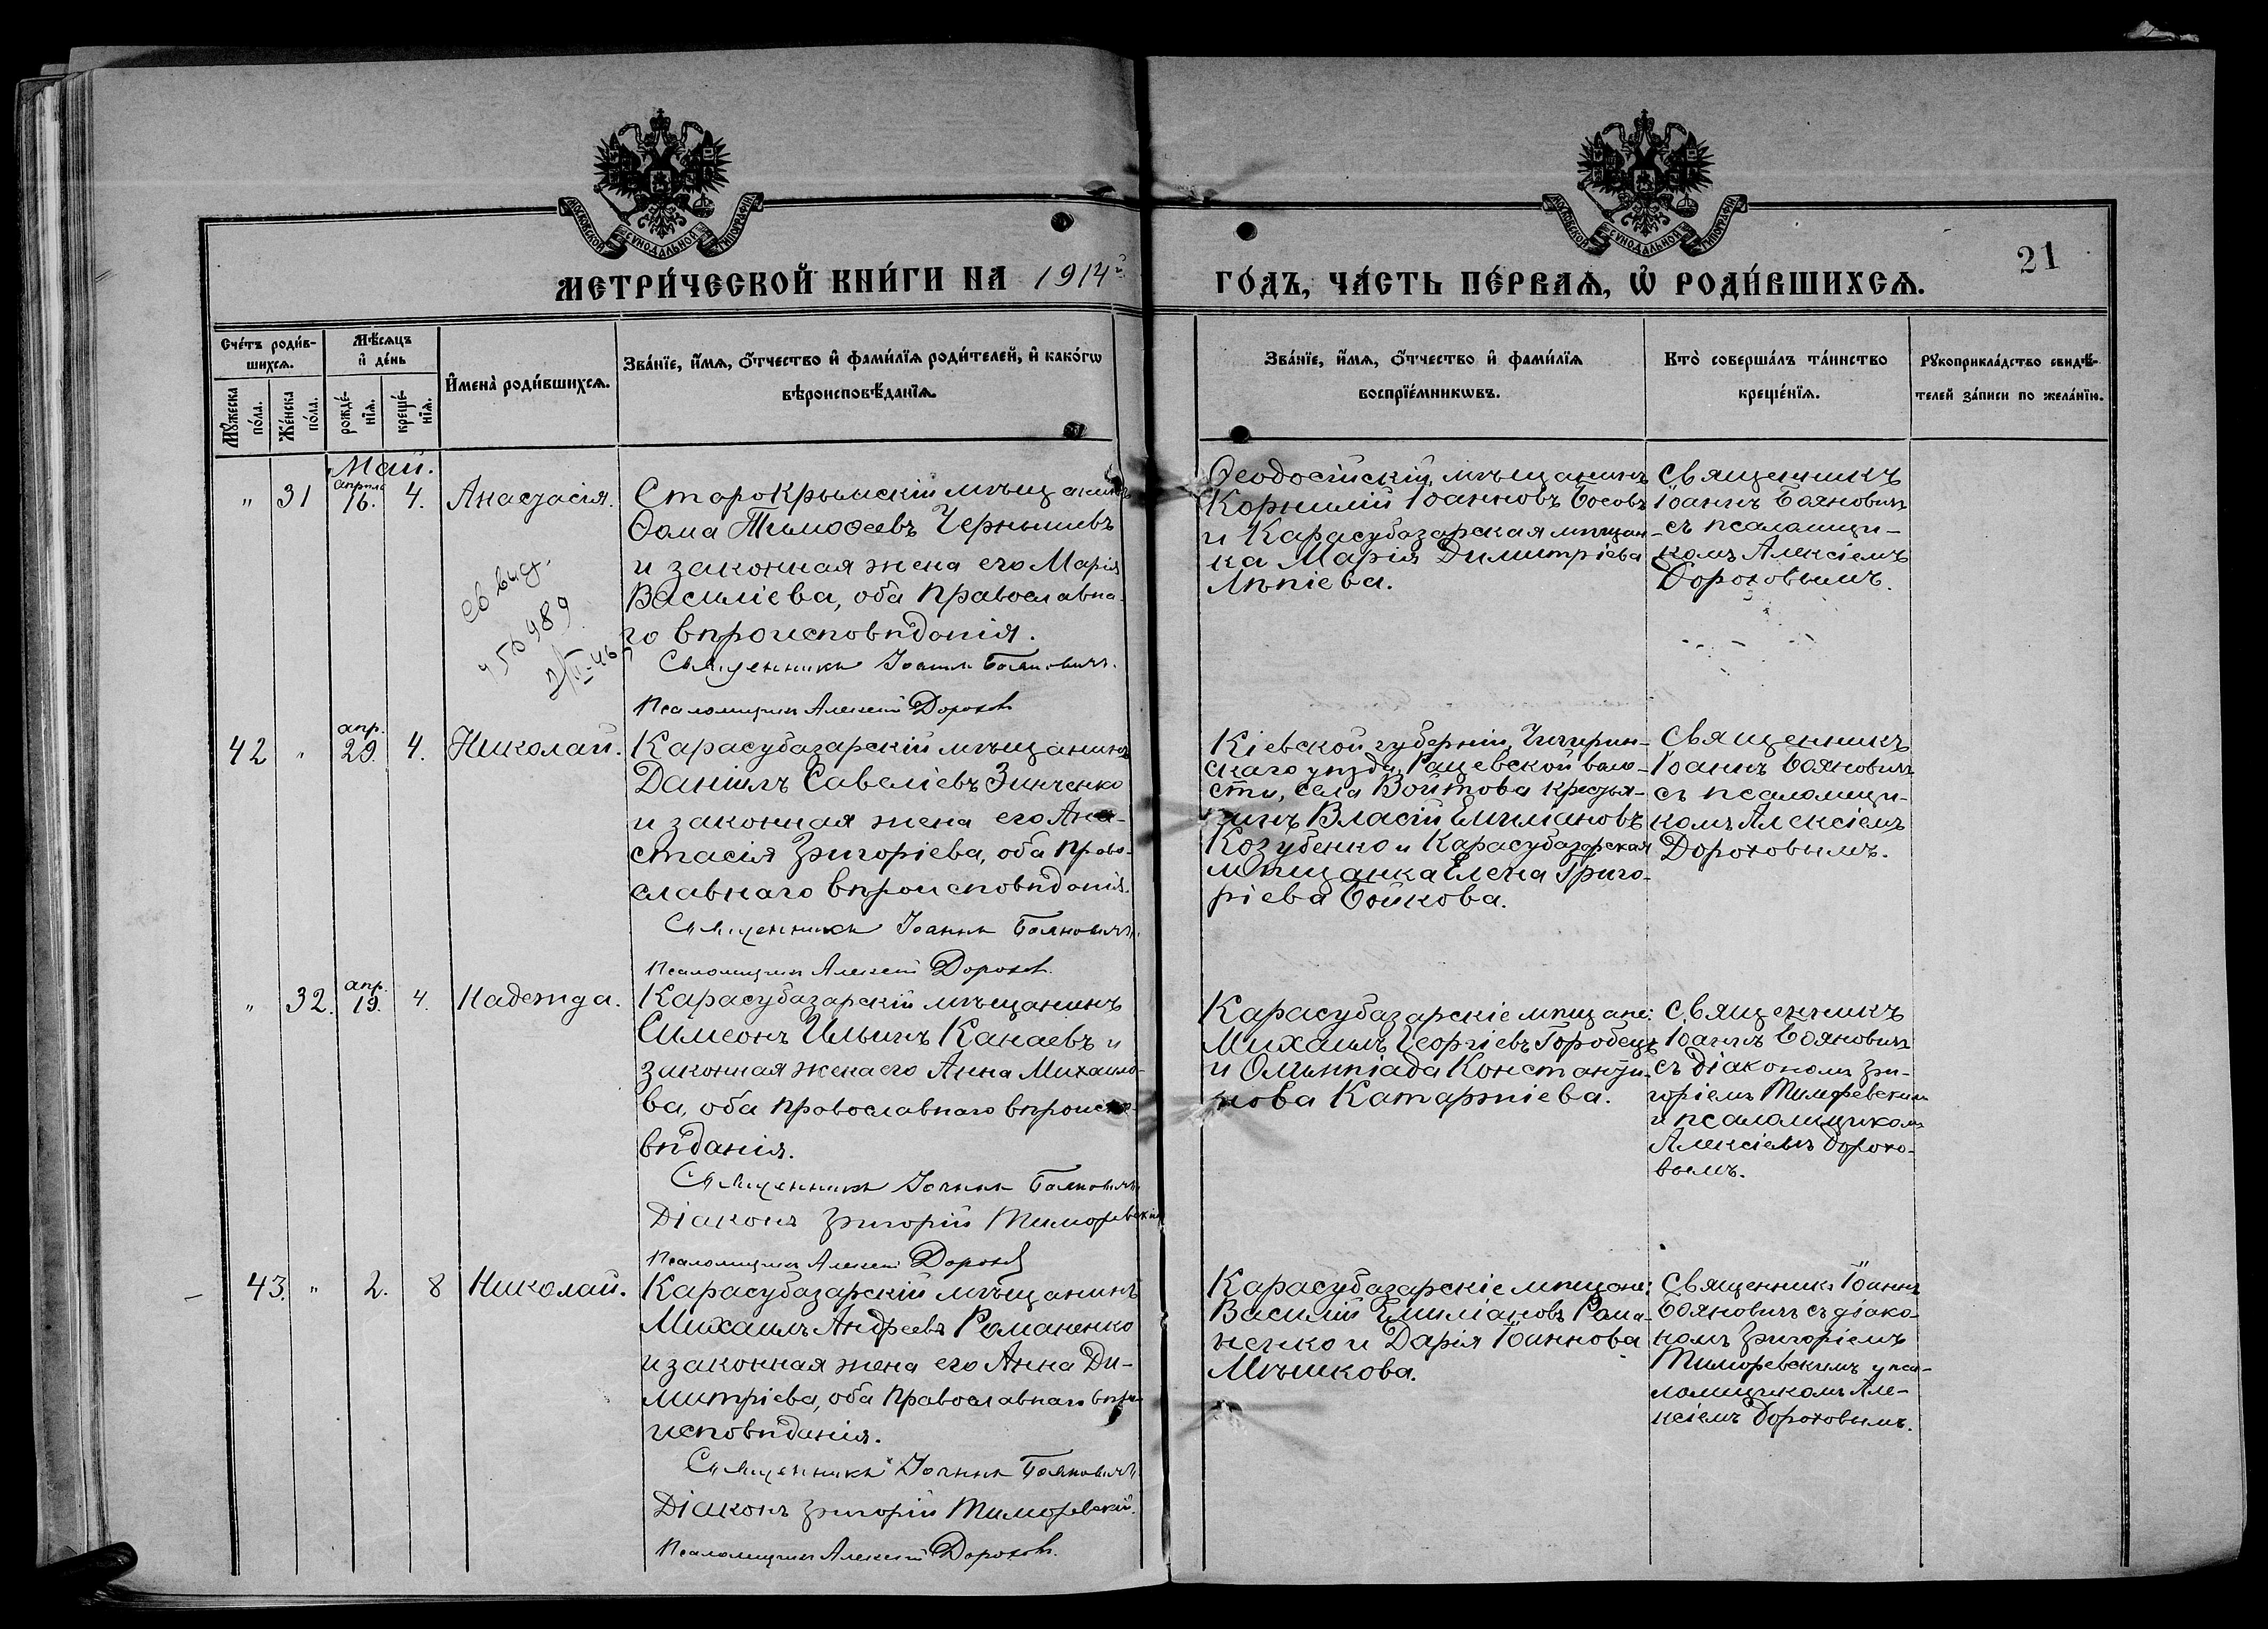 МОСКОВСКОЙ СѴНОДАЛЬНОЙ ТИПОГРАФІИ
МОСКОВСКОЙ СѴНОДАЛЬНОЙ ТИПОГРАФІИ
21
МЕТРИ́ЧЕСКОЙ КНИ́ГИ НА 1914й ГО́ДЪ, ЧА́СТЬ ПЕ́РВАѦ, Ѡ҆ РОДИ́ВШИХСѦ.
Сче́тъ роди́вшихсѧ.
Мѣ́сѧцъ и҆ де́нь
Мꙋ́жеска по́ла.
Же́нска по́ла.
рожде́нїѧ.
креще́нїѧ.
И҆мена̀ роди́вшихсѧ.
Зва́нїе, и҆́мѧ, ѻ҆́тчество и҆ фами́лїѧ роди́телей, и҆ како́гѡ
вѣроисповѣ́данїѧ.
Зва́нїе, и҆́мѧ, ѻ҆́тчество и҆ фами́лїѧ
воспрїе́мникѡвъ.
Кто̀ соверша́лъ та́инство
креще́нїѧ.
Рꙋкоприкла́дство свидѣ́-
телей за́писи по жела́нїю.
Май.
" 31 апрѣля 16. 4. Анастасія.
Старокрымскій мѣщанинъ
Ѳома Тимоѳеевъ Чернышевъ
и законная жена его Марія
Василіева, оба православна-
го вѣроисповѣданія.
Священникъ Іоаннъ Бояновичъ.
Псаломщикъ Алексій Дороховъ
Ѳеодосійскій мѣщанинъ
Корнилій Іоанновъ Босовъ
и Карасубазарская мѣщан-
ка Марія Димитріева
Лѣпіева.
Священникъ
Іоаннъ Бояновичъ
съ псаломщи-
комъ Алексіемъ
Дороховымъ.
св выд.
450489
42 " апр. 29. 4. Николай.
Карасубазарскій мѣщанинъ
Даніилъ Савеліевъ Зинченко
и законная жена его Ана-
стасія Григоріева, оба право-
славнаго вѣроисповѣданія.
Священникъ Іоаннъ Бояновичъ.
Псаломщикъ Алексій Дороховъ.
Кіевской губерніи, Чигирин-
скаго уѣзда, Рацевской воло-
сти, села Войтова крестья-
нинъ Власій Емиліановъ
Козубенко и Карасубазарская
мѣщанка Елена Григо-
ріева Бойкова.
Священникъ
Іоаннъ Бояновичъ
съ псаломщи-
комъ Алексіемъ
Дороховымъ.
" 32. апр. 19. 4. Надежда.
Карасубазарскій мѣщанинъ
Симеонъ Ильинъ Канаевъ и
законная жена его Анна Михаило-
ва, оба православнаго вѣроиспо-
вѣданія.
Священникъ Іоаннъ Бояновичъ
Діаконъ Григорій Тиморевскій
Псаломщикъ Алексій Дороховъ
Карасубазарскіе мѣщане:
Михаилъ Георгіевъ Городецъ
и Олимпіада Константи-
нова Катаржіева.
Священникъ
Іоаннъ Бояновичъ
съ діакономъ Гри-
горіемъ Тиморевскимъ
и псаломщикомъ
Алексіемъ Дорохо-
вымъ.
43. " 2. 8 Николай.
Карасубазарскій мѣщанинъ
Михаилъ Андреевъ Романенко
и законная жена его Анна Ди-
митріева, оба православнаго вѣро-
исповѣданія.
Священникъ Іоаннъ Бояновичъ
Діаконъ Григорій Тиморевскій.
Псаломщикъ Алексій Дороховъ.
Карасубазарскіе мѣщане:
Василій Емиліановъ Рома-
ненко и Дарія Іоаннова
Мѣшкова.
Священникъ Іоаннъ
Бояновичъ съ діако-
номъ Григоріемъ
Тиморевскимъ и пса-
ломщикомъ Але-
ксіемъ Дороховымъ.